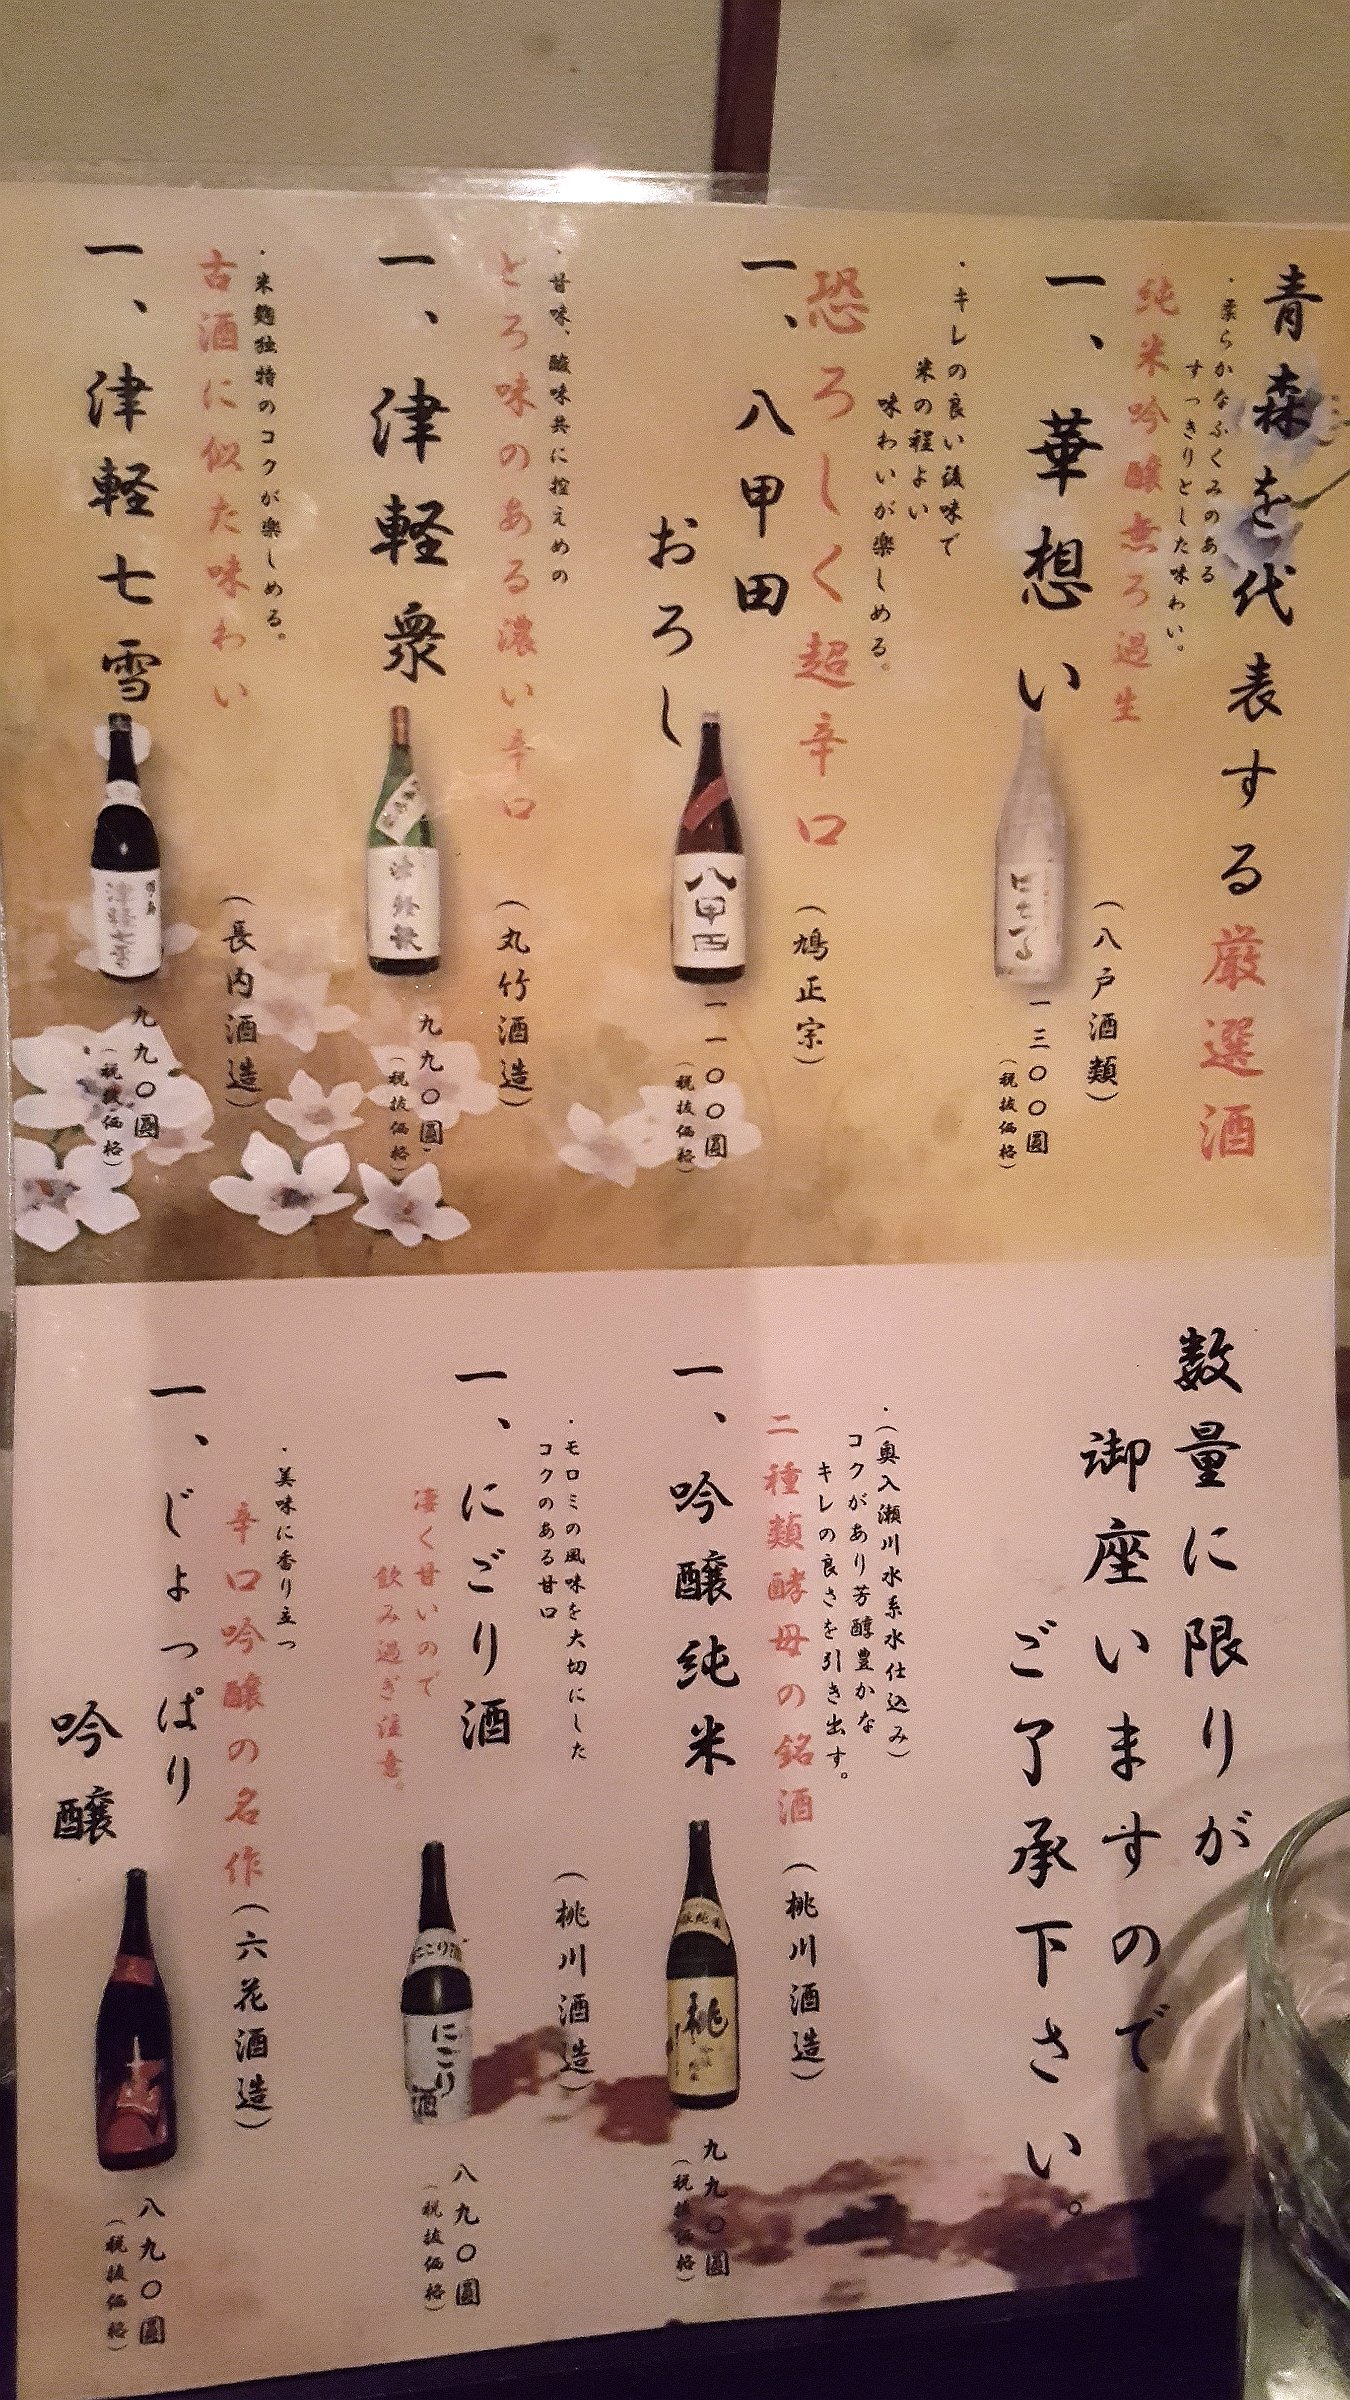 青森を代表する厳選酒
・柔らかなふくみのある
すっきりとした味わい。
純米吟醸無ろ過生
一、華想い
(八戸酒類)
一三〇〇圓
(税抜価格)
・キレの良い後味で
米の程よい
味わいが楽しめる。
恐ろしく超辛口
一、八甲田
おろし
(鳩正宗)
八甲田
一一〇〇圓
(税抜価格)
・甘味、酸味共に控えめの
とろ味のある濃い辛口
一、津軽衆
(丸竹酒造)
津軽衆
九九〇圓
(税抜価格)
・米麹独特のコクが楽しめる。
古酒に似た味わい
一、津軽七雪
(長内酒造)
津軽七雪
九九〇圓
(税抜価格)
数量に限りが
御座いますので
ご了承下さい。
・(奥入瀬川水系水仕込み)
コクがあり芳醇豊かな
キレの良さを引き出す。
二種類酵母の銘酒
一、吟醸純米
(桃川酒造)
桃
九九〇圓
(税抜価格)
・モロミの風味を大切にした
コクのある甘口
一、にごり酒
凄く甘いので
飲み過ぎ注意。
(桃川酒造)
にごり酒
にごり
酒
八九〇圓
(税抜価格)
・美味に香り立つ
辛口吟醸の名作
一、じょっぱり
吟醸
(六花酒造)
八九〇圓
(税抜価格)